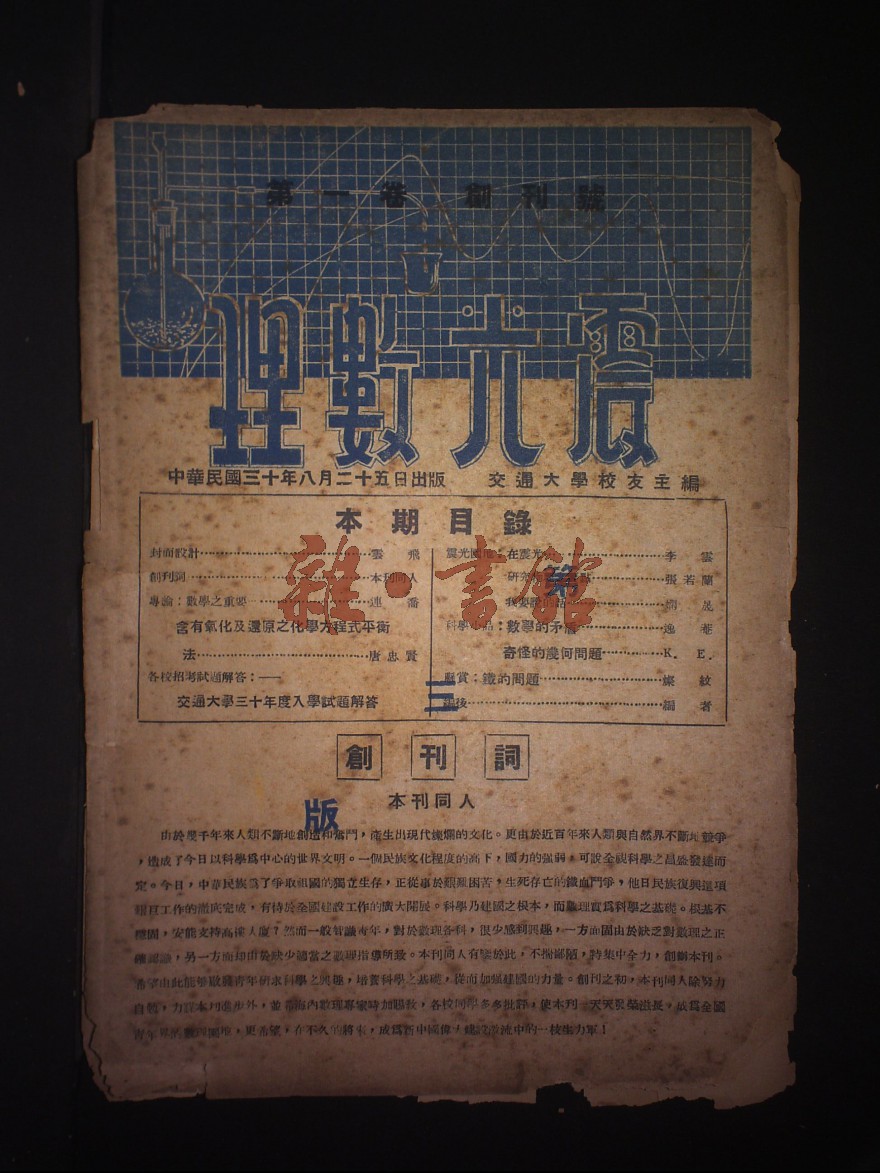 第一卷 創刊號
理數光震
中華民國三十年八月二十五日出版 交通大學校友主編
本期目錄
封面設計 雲飛
創刊詞 本刊同人
專論：數學之重要 連濳
含有氧化及還原之化學方程式平衡
法 唐忠賢
各校招考試題解答：——
交通大學三十年度入學試題解答
震光園地：在震光 李雲
研究 張若蘭
我要
科學小品：數學的矛盾 逸菴
奇怪的幾何問題 K. E.
懸賞：鐵的問題 燦紋
編後 編者
第
三
版
雜·書館
創刊詞
本刊同人
由於幾千年來人類不斷地創造和奮鬥，產生出現代燦爛的文化。更由於近百年來人類與自然界不斷地競爭
，造成了今日以科學爲中心的世界文明。一個民族文化程度的高下，國力的强弱，可說全視科學之昌盛發達而
定。今日，中華民族爲了爭取祖國的獨立生存，正從事於艱難困苦，生死存亡的鐵血鬥爭，他日民族復興這項
艱巨工作的澈底完成，有待於全國建設工作的廣大開展。科學乃建國之根本，而數理實爲科學之基礎。根基不
穩固，安能支持高樓大廈？然而一般智識青年，對於數理各科，很少感到興趣，一方面固由於缺乏對數理之正
確認識，另一方面却由於缺少適當之數理指導所致。本刊同人有鑒於此，不揣鄙陋，特集中全力，創辦本刊。
希望由此能够啟發青年研求科學之興趣，培養科學之基礎，從而加强建國的力量。創刊之初，本刊同人除努力
自勉，力謀本刊進步外，並希海內數理專家時加賜教，各校同學多多批評，使本刊一天天發榮滋長，成爲全國
青年界的數理園地，更希望，在不久的將來，成爲新中國偉大建設激流中的一枝生力軍！